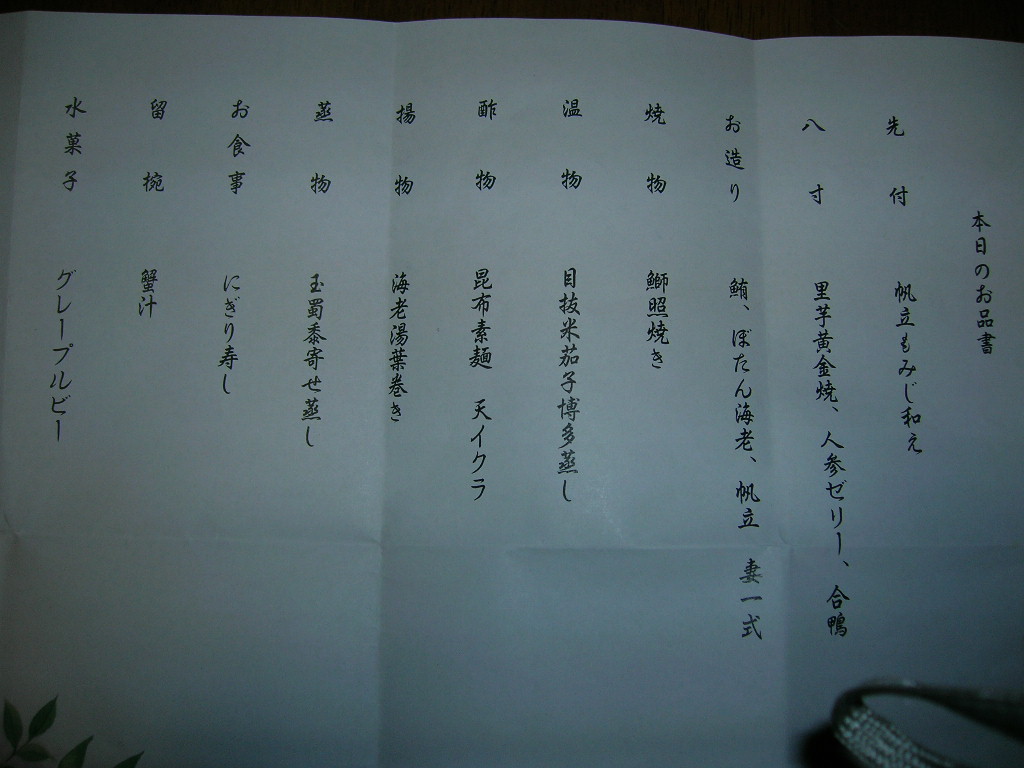 本日のお品書
先付 帆立もみじ和え
八寸 里芋黄金焼、人参ゼリー、合鴨
お造り 鮪、ぼたん海老、帆立 妻一式
焼物 鰤照焼き
温物 目抜米茄子博多蒸し
酢物 昆布素麺 天イクラ
揚物 海老湯葉巻き
蒸物 玉蜀黍寄せ蒸し
お食事 にぎり寿し
留椀 蟹汁
水菓子 グレープルビー